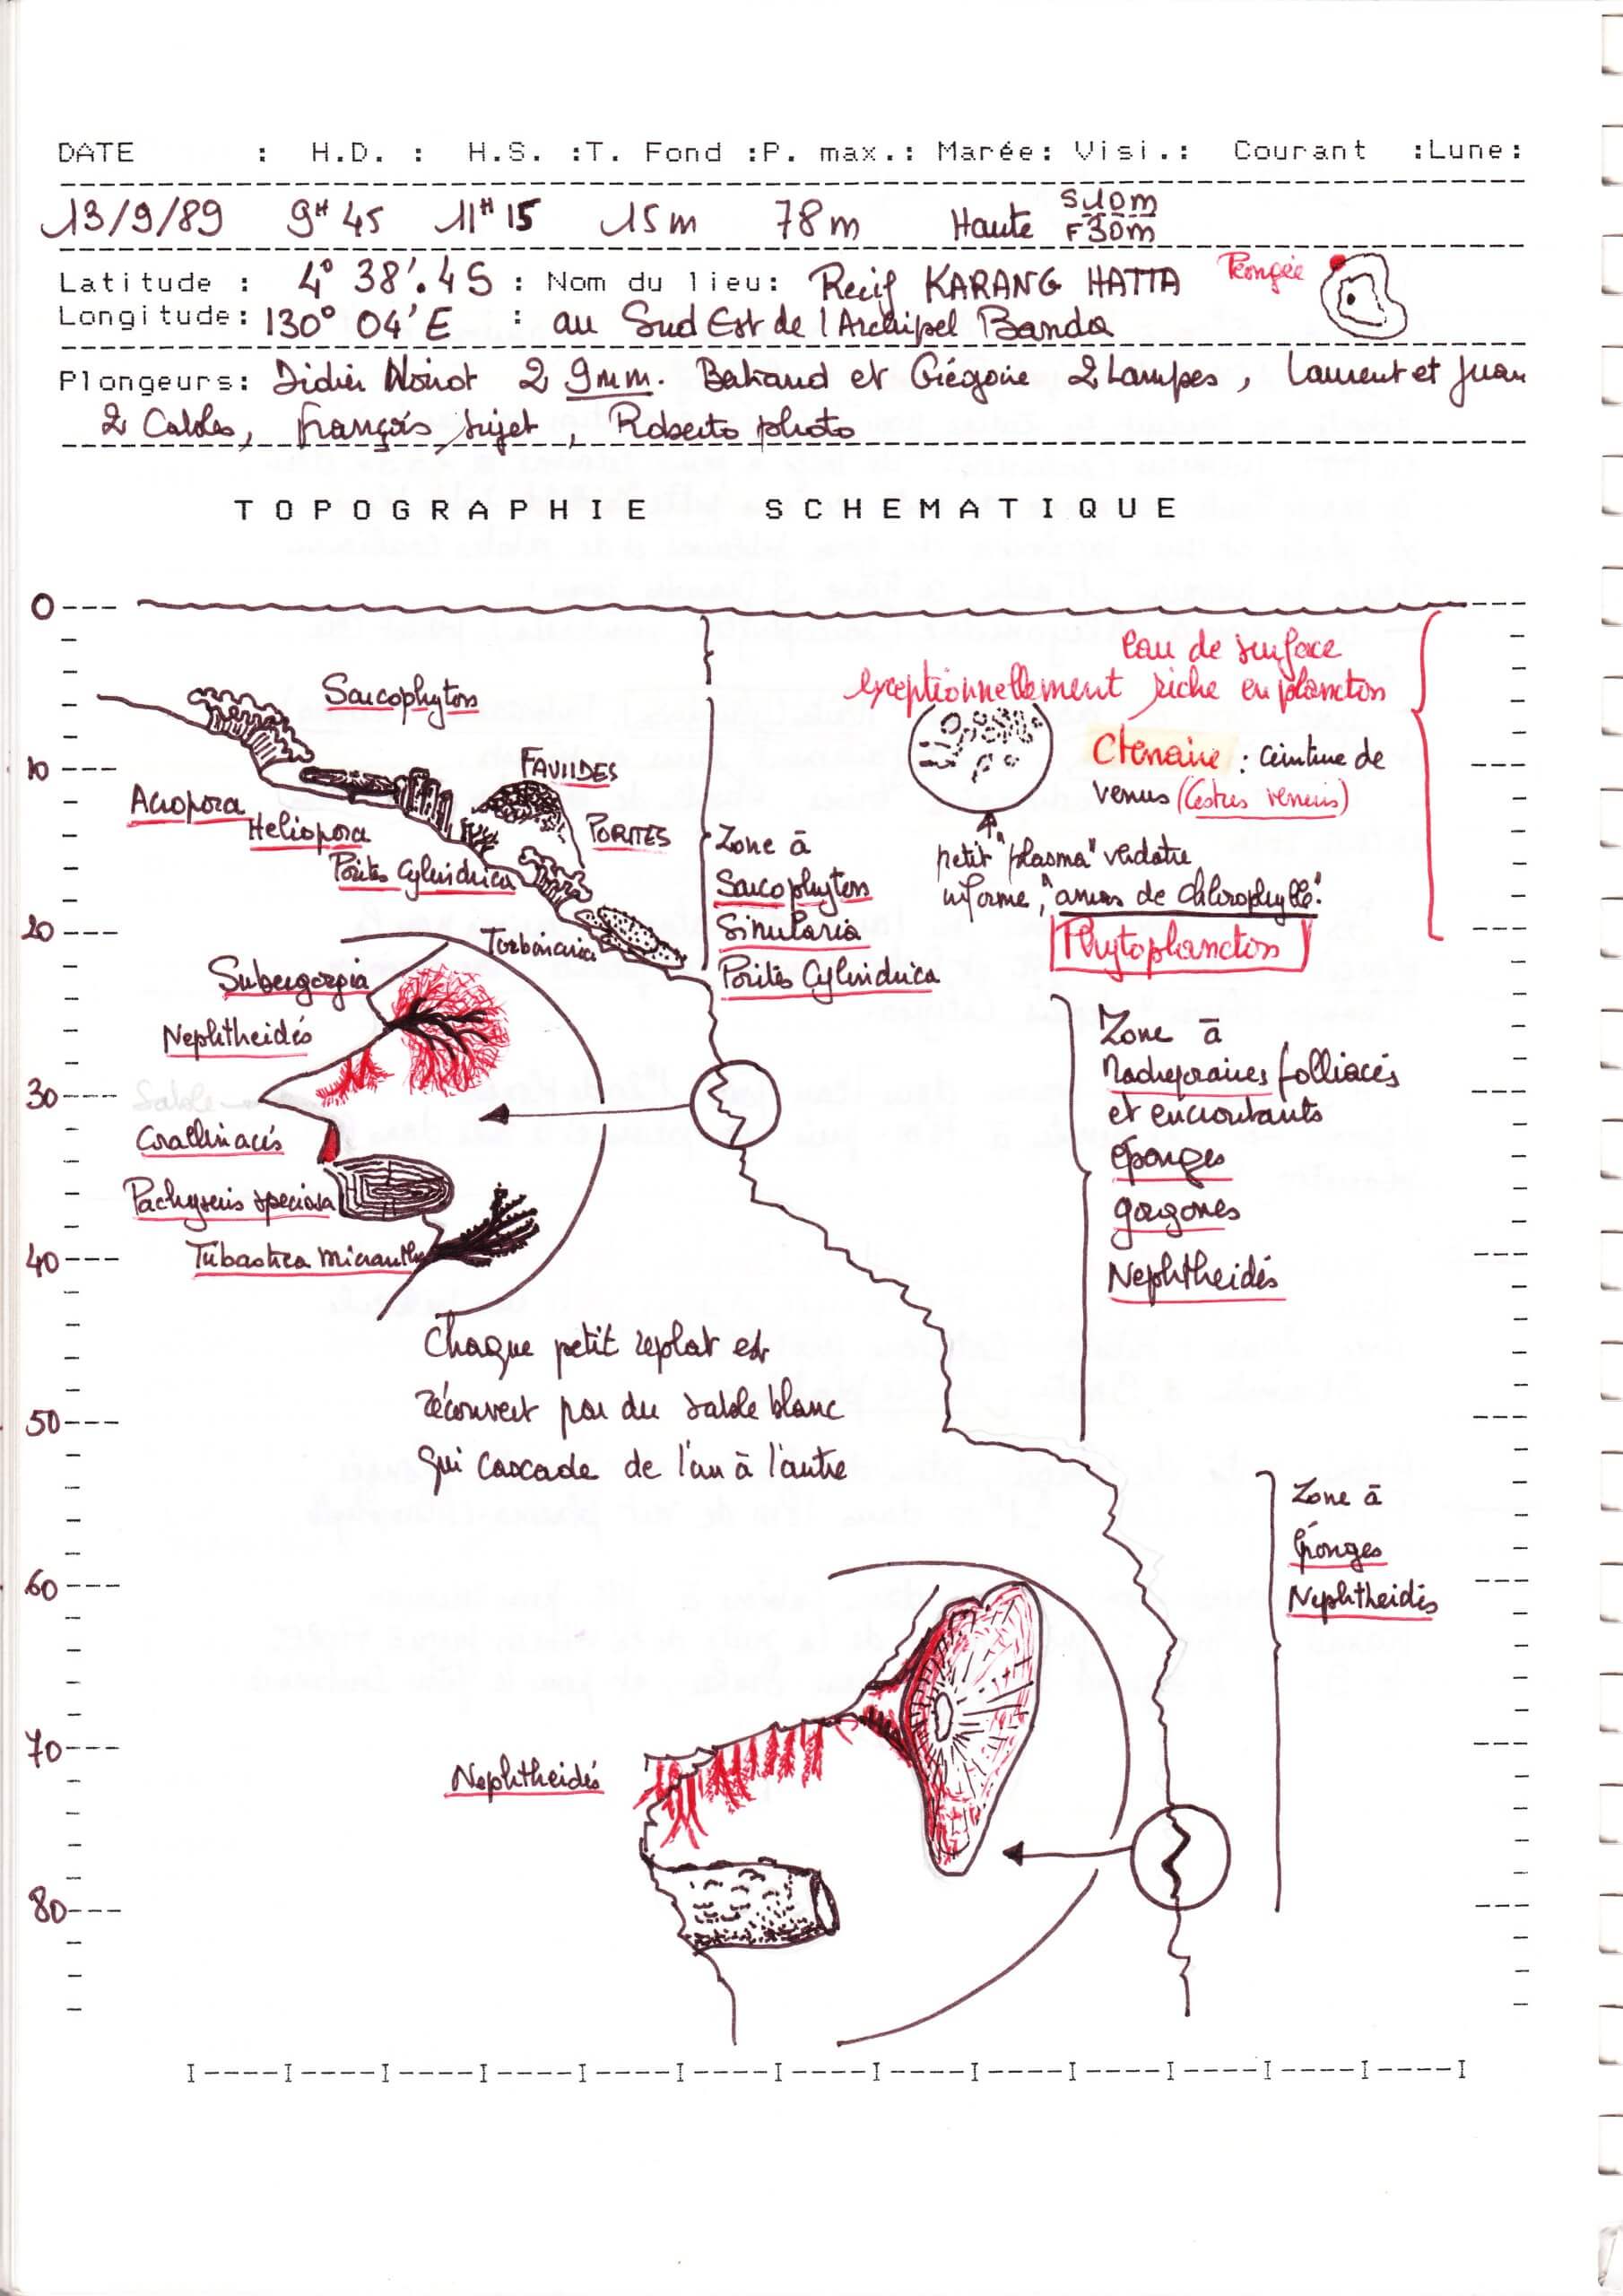 DATE : H.D. : H.S. :T. Fond :P. max.: Marée: Visi.: Courant :Lune:
13/9/89 9H45 11H15 15m 78m Haute S10m
F30m
Latitude : 4° 38'.4S : Nom du lieu: Recif KARANG HATTA Plongée
Longitude: 130° 04'E : au Sud Est de l'Archipel Banda
Plongeurs: Didier Noirot 2 9mm. Betrand et Grégoire 2 Lampes, Laurent et Juan
2 Cables, François sujet, Roberto photo
TOPOGRAPHIE SCHEMATIQUE
0
eau de surface
exceptionnellement riche en plancton
Sarcophyton
Ctenaire : ceinture de
venus (Cestus veneris)
10
FAVIIDES
Acropora
Heliopora
PORITES
Porites Cylindrica
petit "plasma" verdatre
informe, "amas de chlorophylle".
Phytoplancton
Zone à
Sarcophyton
Sinularia
Porites Cylindrica
20
Turbinaria
Subergorgia
Nephtheidés
30
Sable
Coralliniacés
Pachyseris speciosa
Tubastrea micrantha
40
Zone à
Madreporaires folliacés
et encroutants
éponges
gorgones
Nephtheidés
Chaque petit replat est
récouvert par du sable blanc
qui cascade de l'un à l'autre
50
Zone à
éponges
Nephtheidés
60
70
Nephtheidés
80